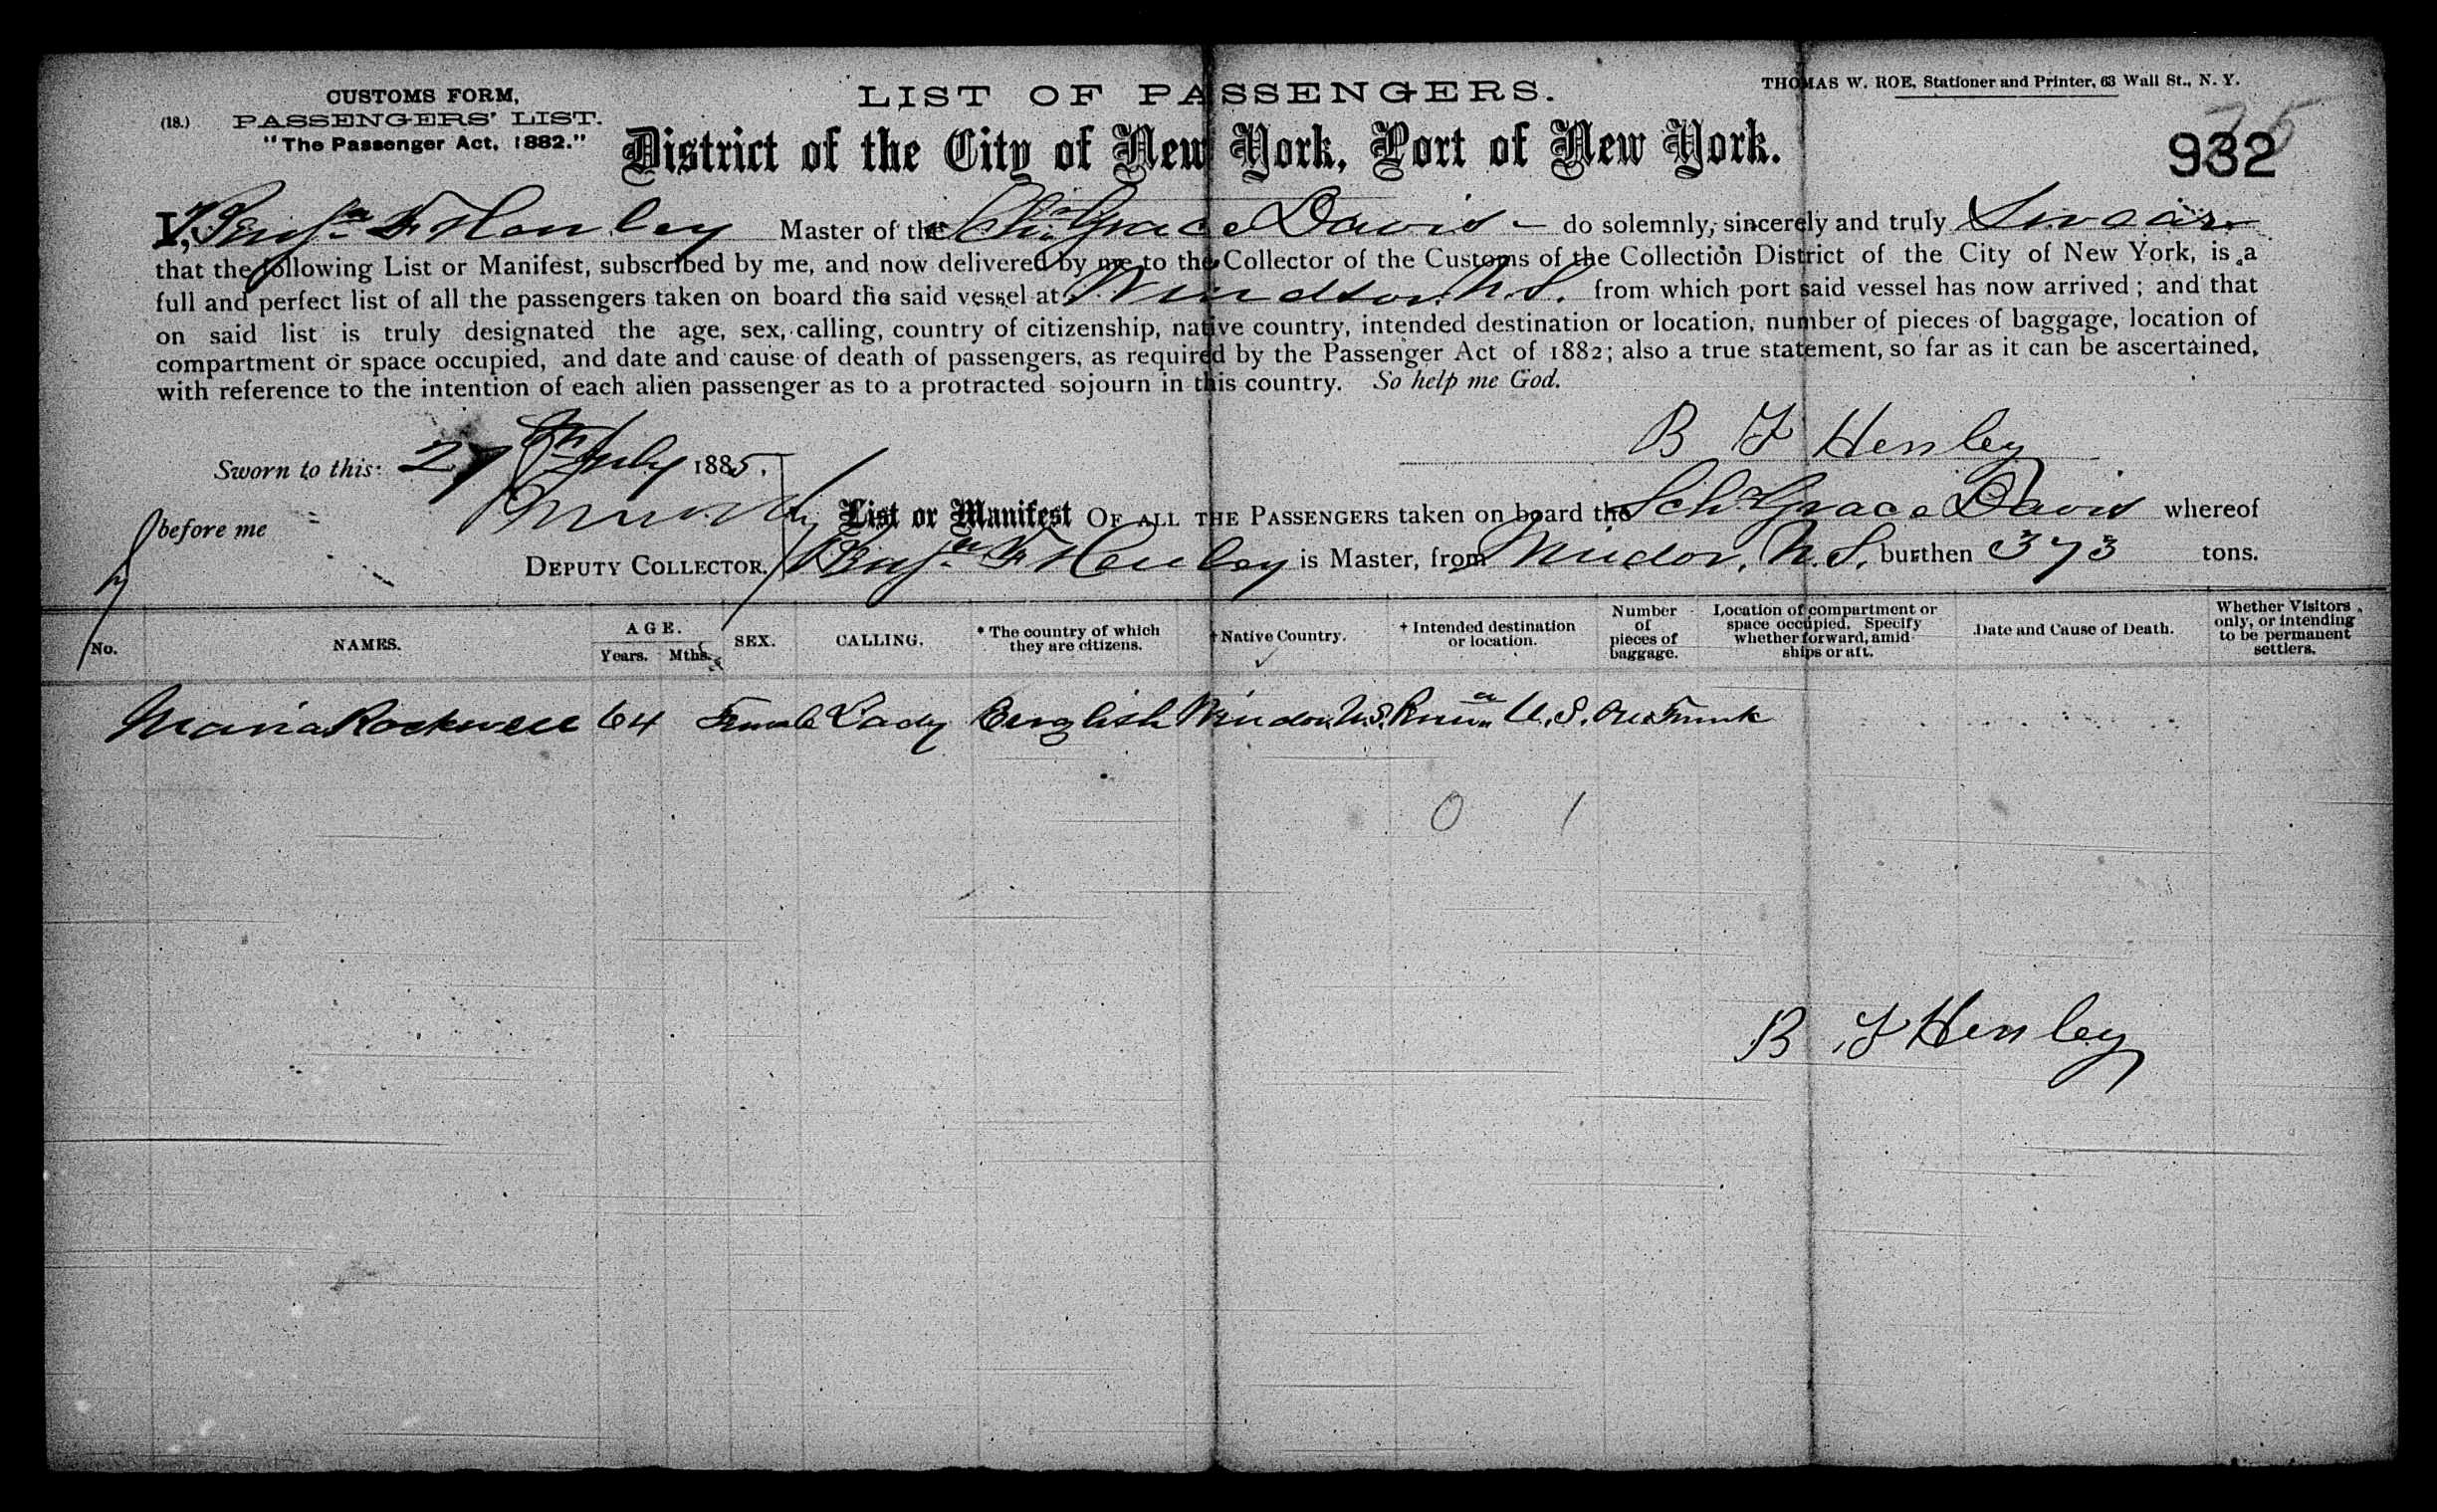 CUSTOMS FORM,
(18.) PASSENGERS' LIST.
"The Passenger Act, 1882."
LIST OF PASSENGERS.
THOMAS W. ROE, Stationer and Printer, 63 Wall St., N. Y.
District of the City of New York, Port of New York.
932
I, Benjn F Henley Master of the Schr Grace Davis — do solemnly, sincerely and truly Swear
that the following List or Manifest, subscribed by me, and now delivered by me to the Collector of the Customs of the Collection District of the City of New York, is a
full and perfect list of all the passengers taken on board the said vessel at Windsor, N.S. from which port said vessel has now arrived; and that
on said list is truly designated the age, sex, calling, country of citizenship, native country, intended destination or location, number of pieces of baggage, location of
compartment or space occupied, and date and cause of death of passengers, as required by the Passenger Act of 1882; also a true statement, so far as it can be ascertained,
with reference to the intention of each alien passenger as to a protracted sojourn in this country. So help me God.
B F Henley
Sworn to this: 27th July 1885.
before me
DEPUTY COLLECTOR.
List or Manifest OF ALL THE PASSENGERS taken on board the Schr Grace Davis whereof
Benjn F Henley is Master, from Windsor, N.S. burthen 373 tons.
No. NAMES. AGE. Years. Mths. SEX. CALLING. * The country of which they are citizens. † Native Country. † Intended destination or location. Number of pieces of baggage. Location of compartment or space occupied. Specify whether forward, amidships or aft. Date and Cause of Death. Whether Visitors only, or intending to be permanent settlers.
Maria Rockwell 64 Female Lady English Windsor N.S. U.S. One Trunk
0 1
B F Henley